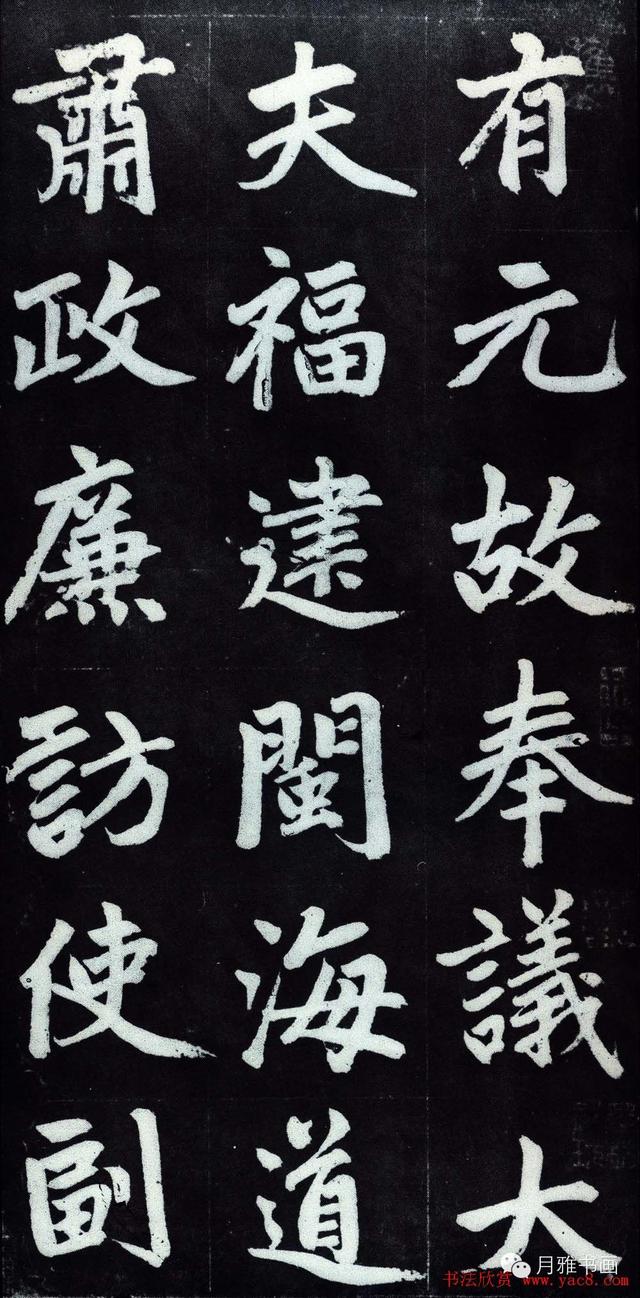 有元故奉議大
夫福建閩海道
肅政廉訪使副
月雅书画
书法欣赏 www.yac8.com